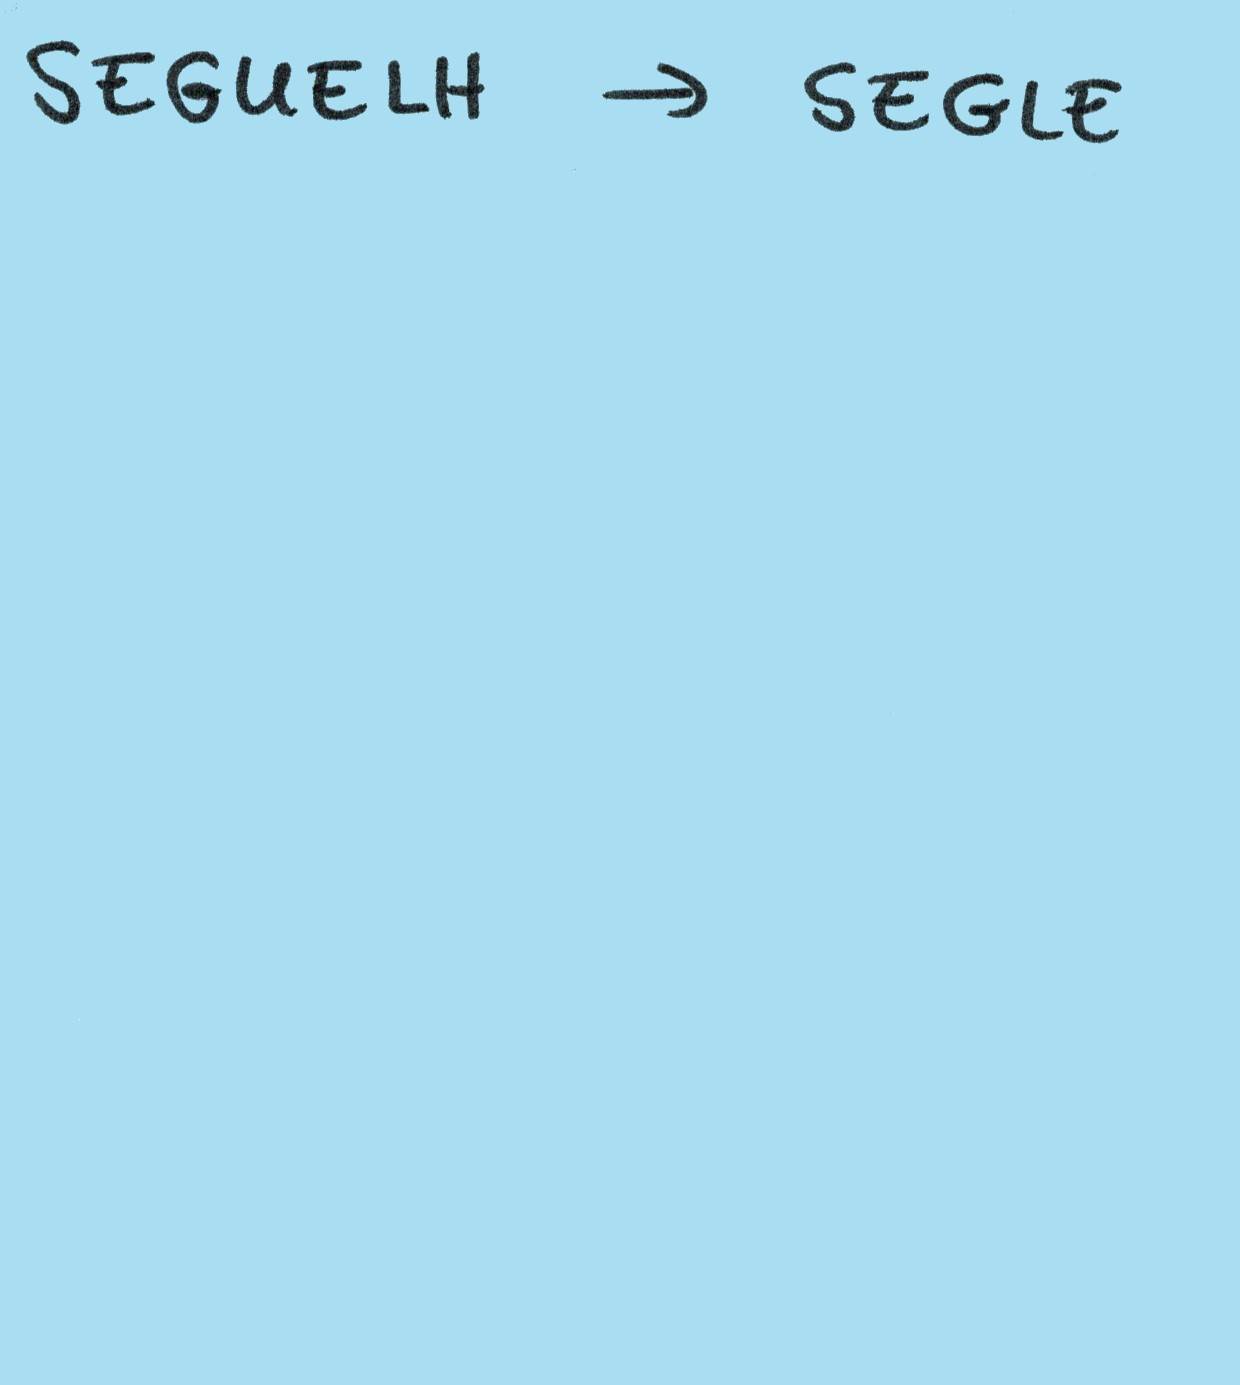 SEGUELH → SEGLE